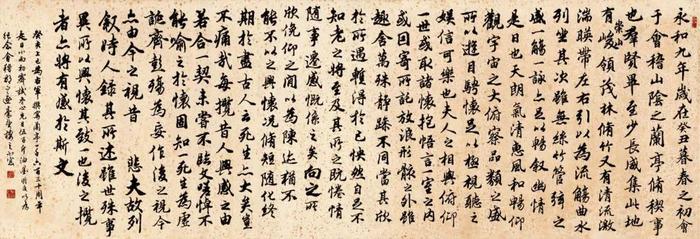 永和九年歲在癸丑暮春之初會
于會稽山陰之蘭亭脩稧事
也羣賢畢至少長咸集此地
有崇山峻領茂林脩竹又有清流激
湍暎帶左右引以為流觴曲水
列坐其次雖無絲竹管弦之
盛一觴一詠亦足以暢敘幽情
是日也天朗氣清惠風和暢仰
觀宇宙之大俯察品類之盛
所以遊目騁懷足以極視聽之
娛信可樂也夫人之相與俯仰
一世或取諸懷抱悟言一室之內
或因寄所託放浪形骸之外雖
趣舍萬殊靜躁不同當其欣
於所遇蹔得於己怏然自足不
知老之將至及其所之既惓情
隨事遷感慨係之矣向之所
欣俛仰之間以為陳迹猶不
能不以之興懷況脩短隨化終
期於盡古人云死生亦大矣豈
不痛哉每攬昔人興感之由
若合一契未嘗不臨文嗟悼不
能喻之於懷固知一死生為虛
誕齊彭殤為妄作後之視今
亦由今之視昔悲夫故列
敘時人錄其所述雖世殊事
異所以興懷其致一也後之攬
者亦將有感於斯文
癸未上巳為右軍撰寫蘭亭一千六百五十周年
是日小雨初